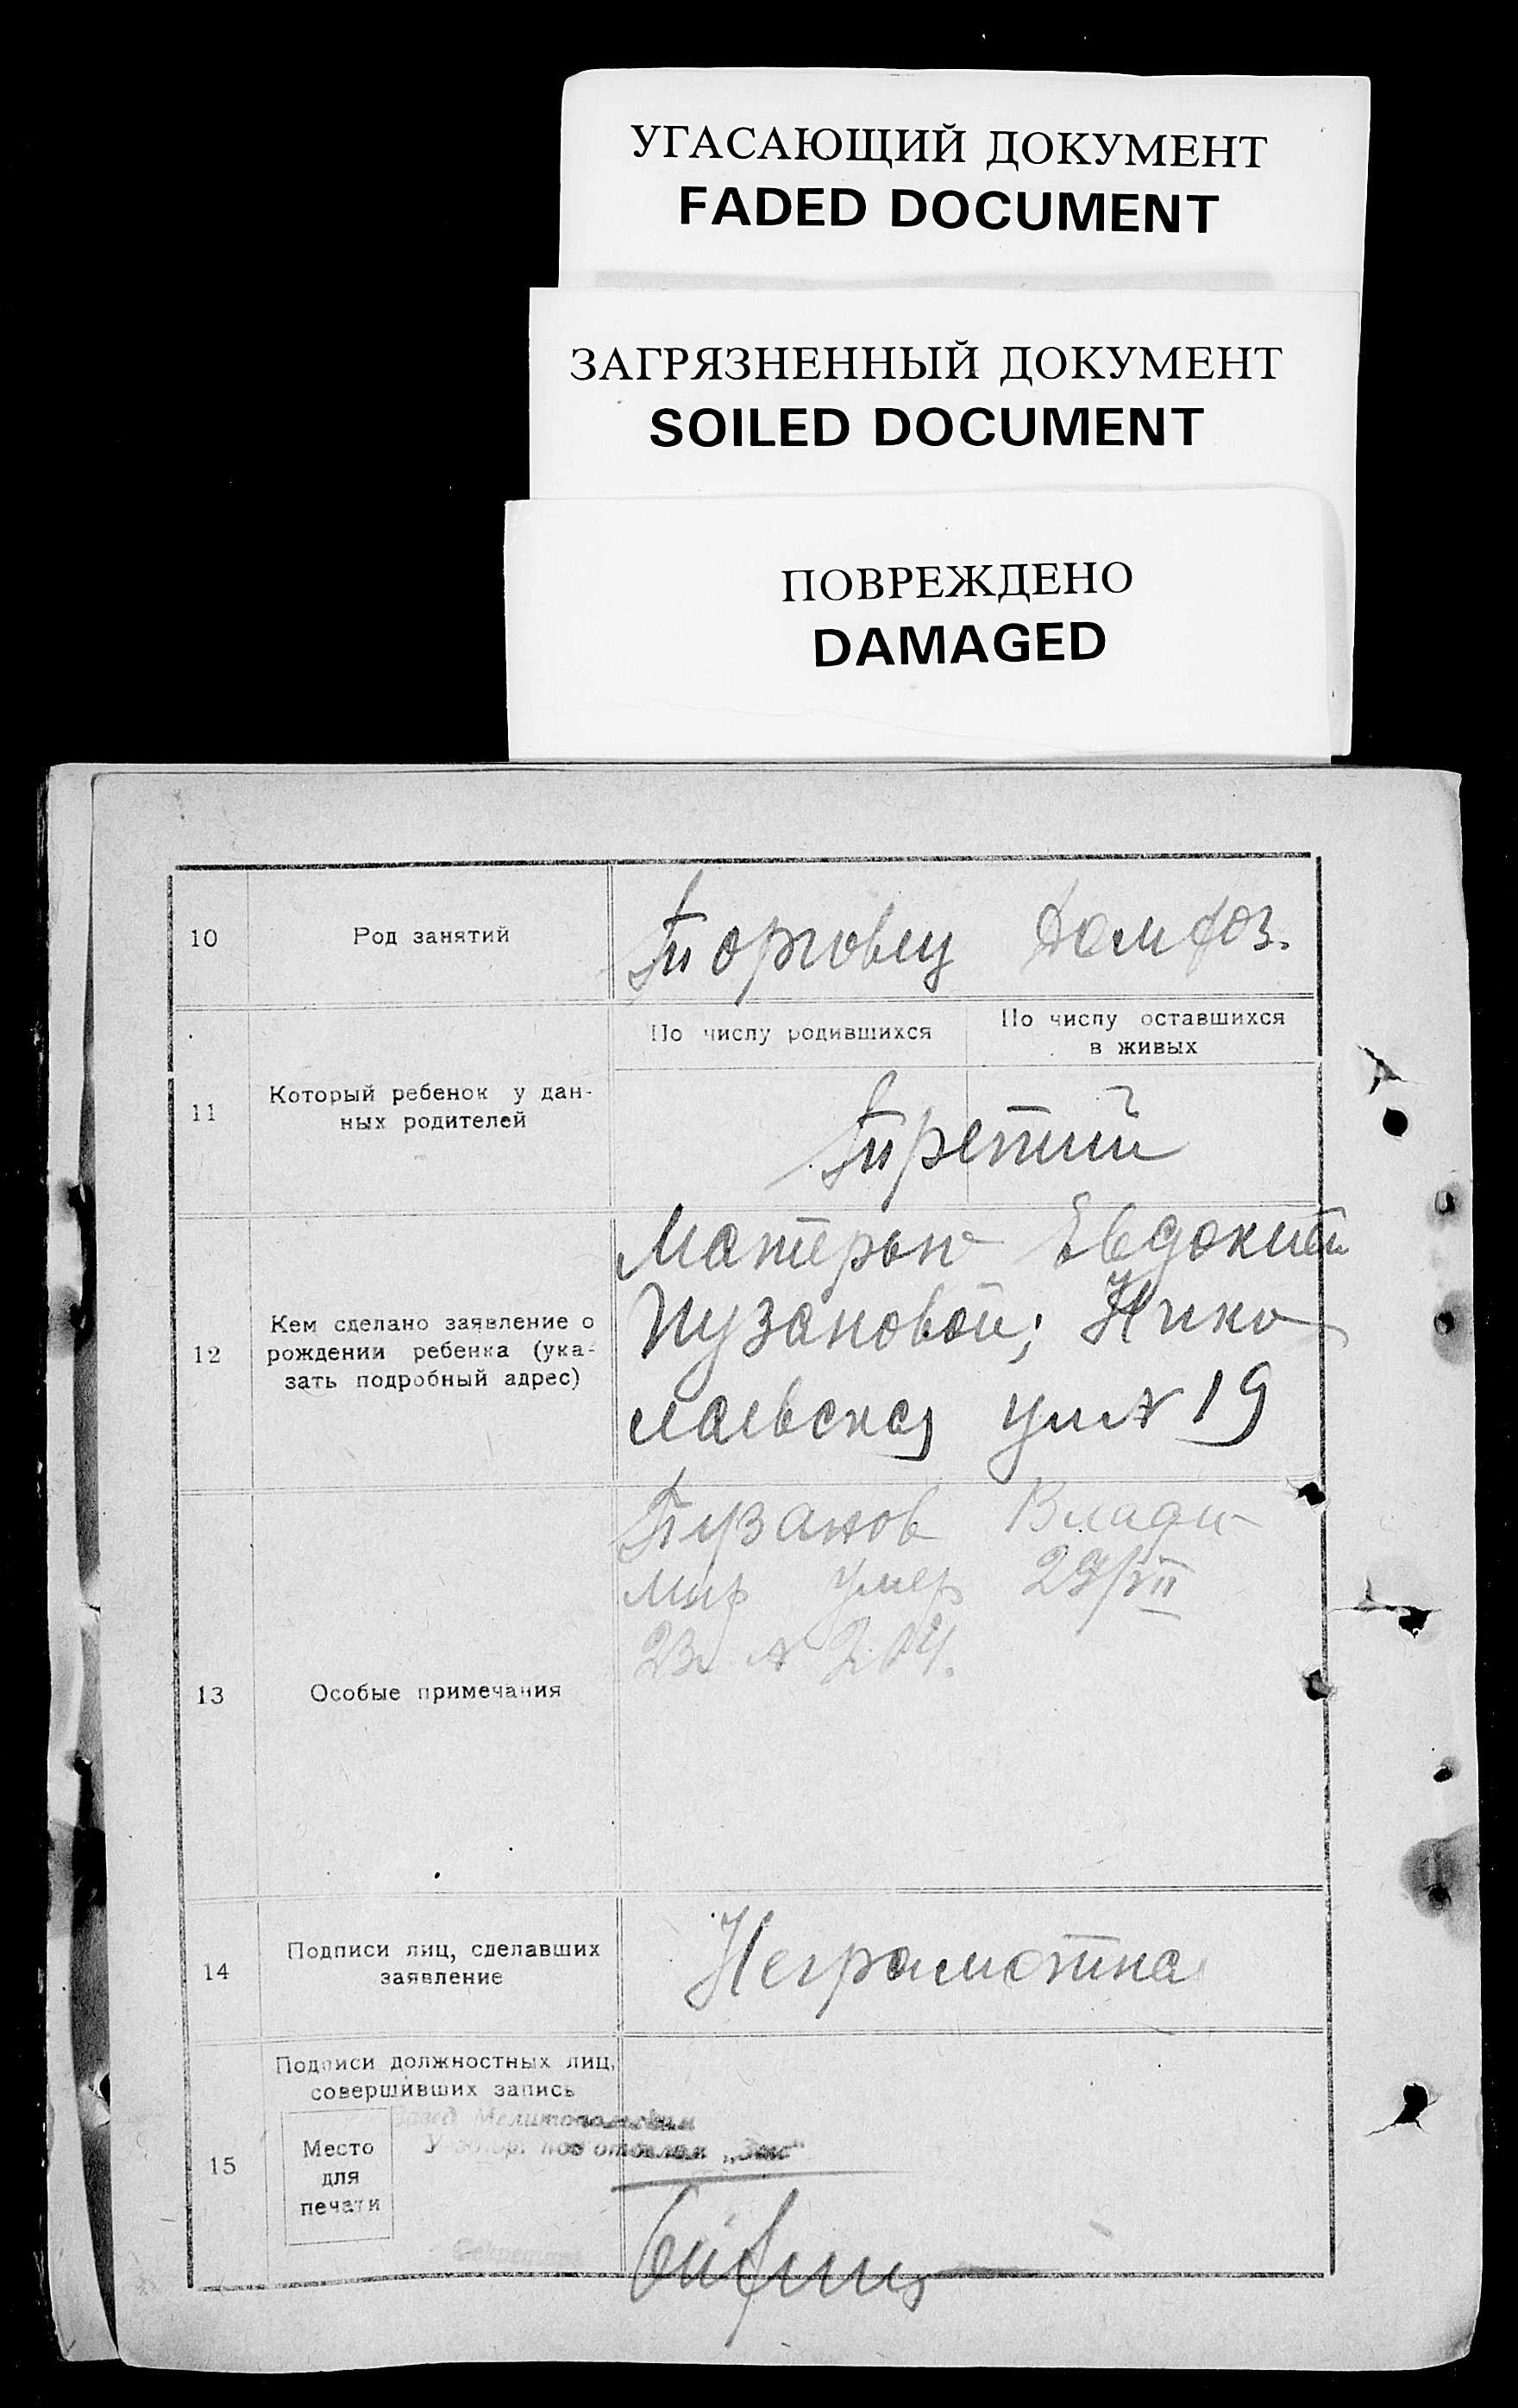 УГАСАЮЩИЙ ДОКУМЕНТ
FADED DOCUMENT
ЗАГРЯЗНЕННЫЙ ДОКУМЕНТ
SOILED DOCUMENT
ПОВРЕЖДЕНО
DAMAGED
10
Род занятий
Торговец Домхоз.
11
Который ребенок у дан-
ных родителей
По числу родившихся
По числу оставшихся
в живых
Третий
12
Кем сделано заявление о
рождении ребенка (ука-
зать подробный адрес)
Матерью Евдокией
Пузановой; Нико
лаевская ул № 19
13
Особые примечания
Пузанов Влади
мир умер 29/VII
23г. № 204.
14
Подписи лиц, сделавших
заявление
Неграмотна
15
Подписи должностных лиц,
совершивших запись
Место
для
печати
Завед. Мелитопольским
подотделом „Загс“
Секретарь